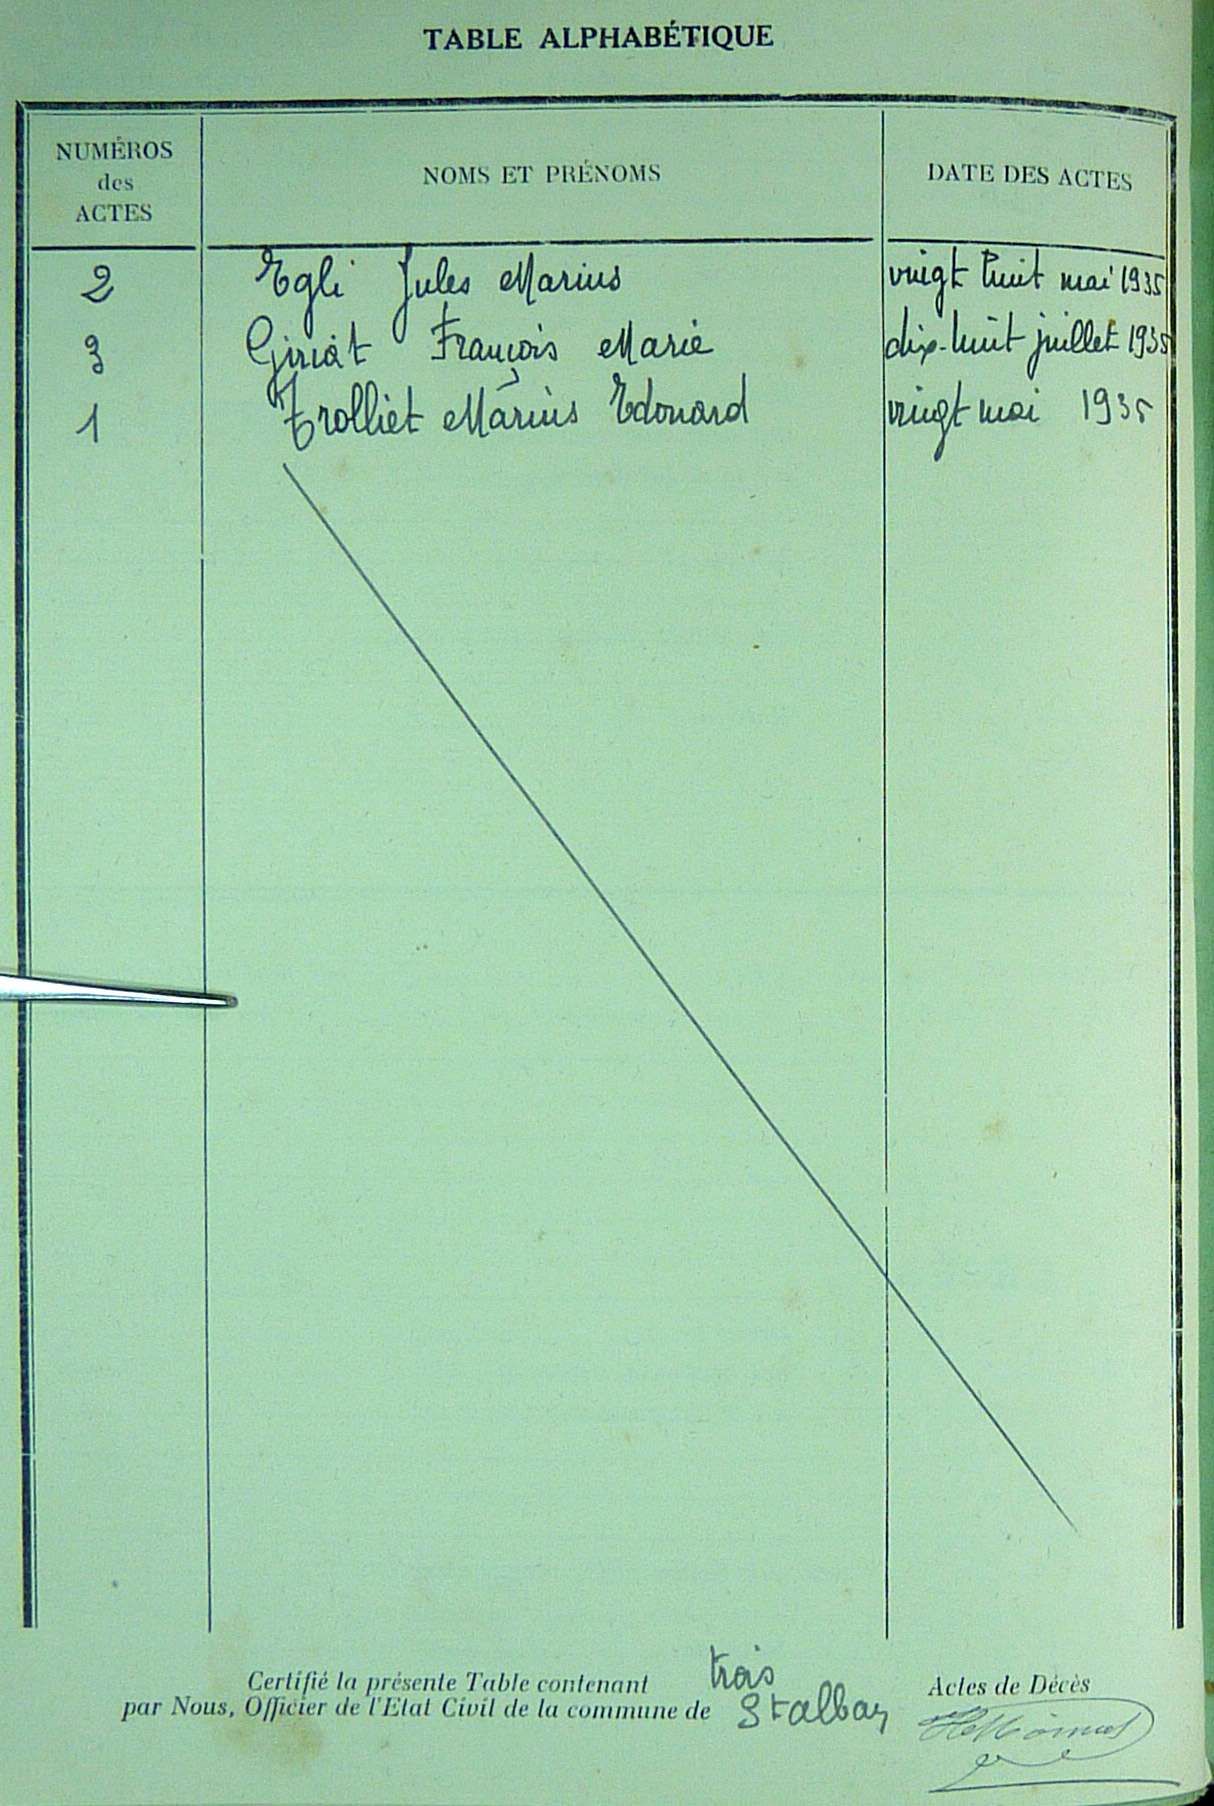 TABLE ALPHABÉTIQUE
NUMÉROS des ACTES NOMS ET PRÉNOMS DATE DES ACTES
2 Egli Jules Marius vingt huit mai 1935
3 Giriat François Marie dix-huit juillet 1935
1 Trolliet Marius Edouard vingt mai 1935
Certifié la présente Table contenant trois Actes de Décès
par Nous, Officier de l'Etat Civil de la commune de St alban